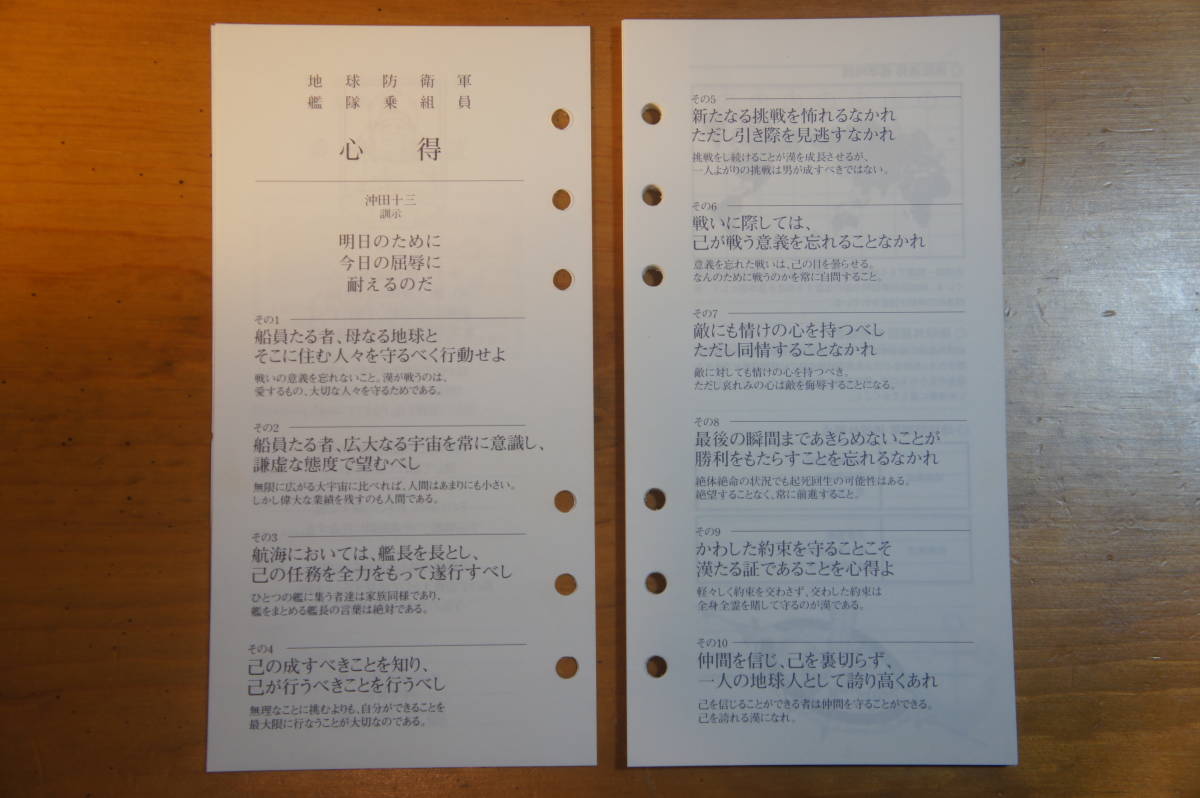 地球防衛軍
艦隊乗組員
心得
沖田十三
訓示
明日のために
今日の屈辱に
耐えるのだ
その1
船員たる者、母なる地球と
そこに住む人々を守るべく行動せよ
戦いの意義を忘れないこと。漢が戦うのは、
愛するもの、大切な人々を守るためである。
その2
船員たる者、広大なる宇宙を常に意識し、
謙虚な態度で望むべし
無限に広がる大宇宙に比べれば、人間はあまりにも小さい。
しかし偉大な業績を残すのも人間である。
その3
航海においては、艦長を長とし、
己の任務を全力をもって遂行すべし
ひとつの艦に集う者達は家族同様であり、
艦をまとめる艦長の言葉は絶対である。
その4
己の成すべきことを知り、
己が行うべきことを行うべし
無理なことに挑むよりも、自分ができることを
最大限に行なうことが大切なのである。
その5
新たなる挑戦を怖れるなかれ
ただし引き際を見逃すなかれ
挑戦をし続けることが漢を成長させるが、
一人よがりの挑戦は男が成すべきではない。
その6
戦いに際しては、
己が戦う意義を忘れることなかれ
意義を忘れた戦いは、己の目を曇らせる。
なんのために戦うのかを常に自問すること。
その7
敵にも情けの心を持つべし
ただし同情することなかれ
敵に対しても情けの心を持つべき。
ただし哀れみの心は敵を侮辱することになる。
その8
最後の瞬間まであきらめないことが
勝利をもたらすことを忘れるなかれ
絶体絶命の状況でも起死回生の可能性はある。
絶望することなく、常に前進すること。
その9
かわした約束を守ることこそ
漢たる証であることを心得よ
軽々しく約束を交わさず、交わした約束は
全身全霊を賭して守るのが漢である。
その10
仲間を信じ、己を裏切らず、
一人の地球人として誇り高くあれ
己を信じることができる者は仲間を守ることができる。
己を誇れる漢になれ。